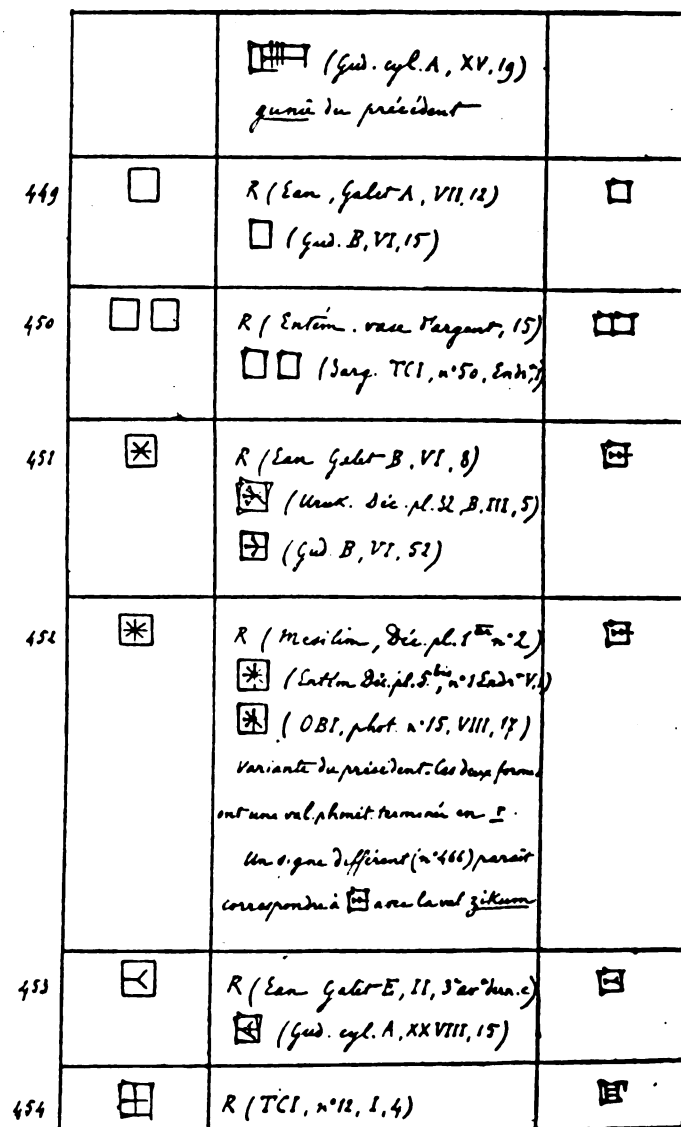 (Gud. cyl. A, XV, 19)
gunié du précédent
449 R (Ean, Galet A, VII, 12)
(Gud. B, VI, 15)
450 R (Entém. vase d'argent, 15)
(Sarg. TCI, n° 50,
451 R (Ean Galet B, VI, 8)
(Uruk. Déc. pl. 32, B, III, 5)
(Gud. B, VI, 52)
452 R (Mesilim, Déc. pl. 1 n° 2)
Déc. pl. 5 bis, n° 1
(OBI, phot. n° 15, VIII, 17)
variante du précédent. Ces deux formes
ont une val. phonét. terminée en r.
Un signe différent (n° 466) parait
correspondre à avec la val zikum
453 R (Ean Galet E, II, 3°
(Gud. cyl. A, XXVIII, 15)
454 R (TCI, n° 12, I, 4)